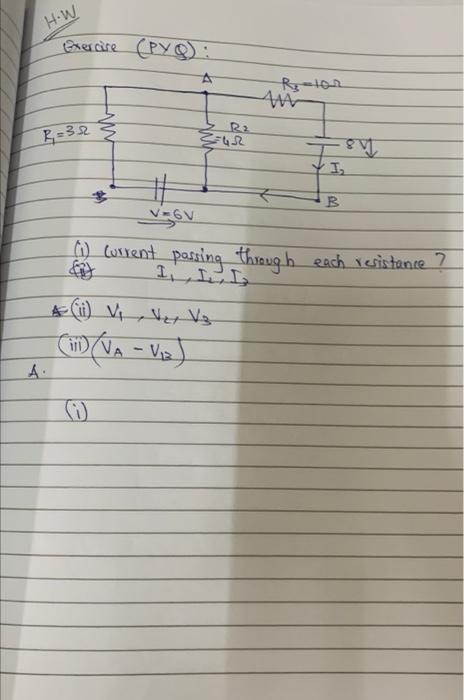 H.W
Exercise (PYQ):
A
R3=10Ω
R1=3Ω
R2
=4Ω
8V
I2
B
V=6V
(i) Current passing through each resistance?
I1, I2, I3
(ii) V1, V2, V3
(iii) (VA - VB)
A.
(i)